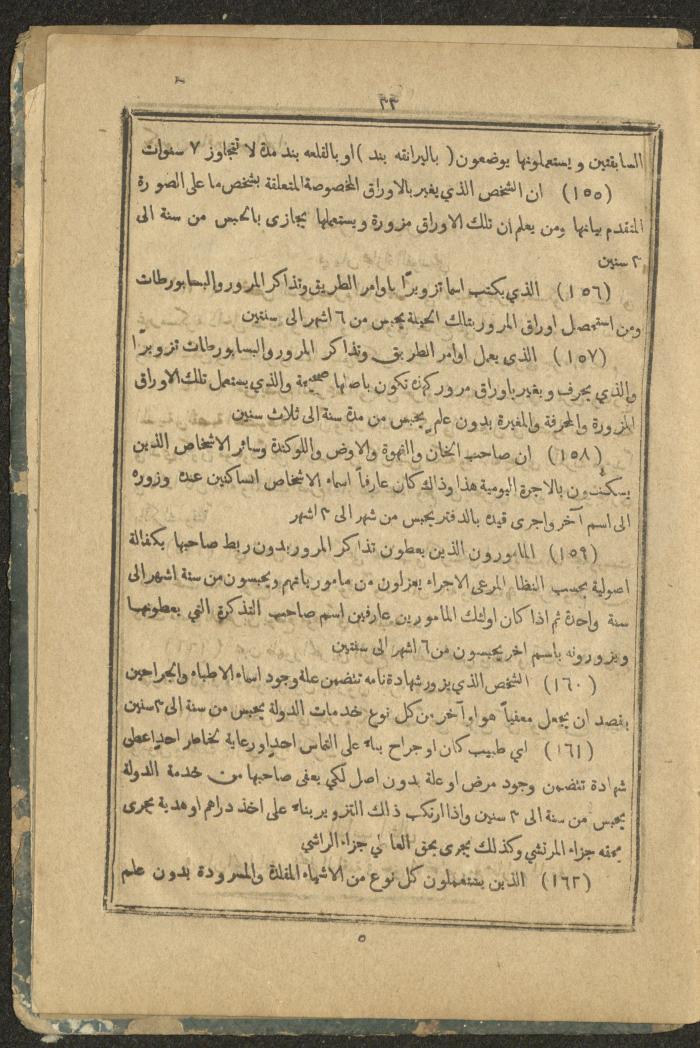 ٣٣
السابقتين ويستعملونها يوضعون ( بالپرانقه بند ) او بالقلعه بند مدة لا تتجاوز ٧ سنوات
(١٥٥) ان الشخص الذي يغير بالاوراق المخصوصة المتعلقة بشخص ما على الصورة
المتقدم بيانها ومن يعلم ان تلك الاوراق مزورة ويستعملها يجازى بالحبس من سنة الى
٣ سنين
(١٥٦) الذي يكتب اسما تزويرًا باوامر الطريق وتذاكر المرور والبسابورطات
ومن استحصل اوراق المرور بتلك الحيلة يحبس من ٦ اشهر الى سنتين
(١٥٧) الذي يعمل اوامر الطريق وتذاكر المرور والبسابورطات تزويرًا
والذي يحرف ويغير باوراق مرور كهذه تكون باصلها صحيحة والذي يستعمل تلك الاوراق
المزورة والمحرفة والمغيرة بدون علم يحبس من مدة سنة الى ثلاث سنين
(١٥٨) ان صاحب الخان والقهوة والاوض واللوكندة وسائر الاشخاص الذين
يسكنون بالاجرة اليومية هذا وذاك كان عارفاً اسماء الاشخاص الساكنين عنده وزوره
الى اسم آخر واجرى قيده بالدفتر يحبس من شهر الى ٣ اشهر
(١٥٩) المامورون الذين يعطون تذاكر المرور بدون ربط صاحبها بكفالة
اصولية بحسب النظام المرعي الاجراء يعزلون من مامورياتهم ويحبسون من ستة اشهر الى
سنة واحدة ثم اذا كان اولئك المامورين عارفين اسم صاحب التذكرة التي يعطونها
ويزورونه باسم اخر يحبسون من ٦ اشهر الى سنتين
(١٦٠) الشخص الذي يزور شهادة نامه تتضمن علة وجود اسماء الاطباء والجراحين
بقصد ان يجعل معفياً هو او آخر من كل نوع خدمات الدولة يحبس من سنة الى ٣ سنين
(١٦١) اي طبيب كان او جراح بناء على التماس احد او رعاية لخاطر احد اعطى
شهادة تتضمن وجود مرض او علة بدون اصل لكي يعفى صاحبها من خدمة الدولة
يحبس من سنة الى ٣ سنين واذا ارتكب ذلك التزوير بناء على اخذ دراهم او هدية يجرى
بحقه جزاء المرتشي وكذلك يجرى بحق المعطي جزاء الراشي
(١٦٢) الذين يستعملون كل نوع من الاشياء المقلدة والمزورة بدون علم
٥